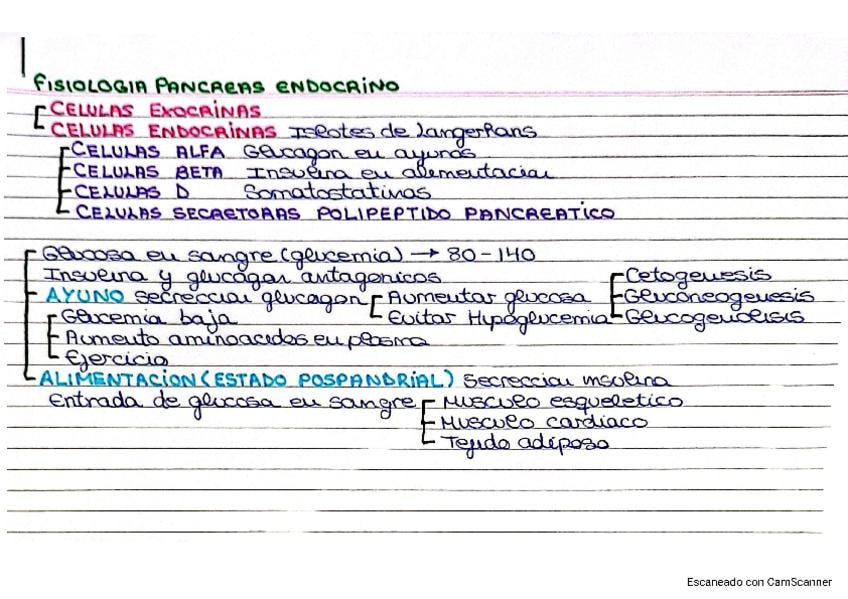 FISIOLOGIA PANCREAS ENDOCRINO
CELULAS EXOCRINAS
CELULAS ENDOCRINAS Islotes de Langerhans
CELULAS ALFA Glucagon en ayunas
CELULAS BETA Insulina en alimentacion
CELULAS D Somatostatinas
CELULAS SECRETORAS POLIPEPTIDO PANCREATICO
Glucosa en sangre (glucemia) → 80-140
Insulina y glucagon antagonicos
AYUNO secreccion glucagon Aumentar glucosa
Evitar Hipoglucemia
Cetogenesis
Gluconeogenesis
Glucogenolisis
Glucemia baja
Aumento aminoacidos en plasma
Ejercicio
ALIMENTACION (ESTADO POSPANDRIAL) secreccion insulina
Entrada de glucosa en sangre Musculo esqueletico
Musculo cardiaco
Tejido adiposo
Escaneado con CamScanner